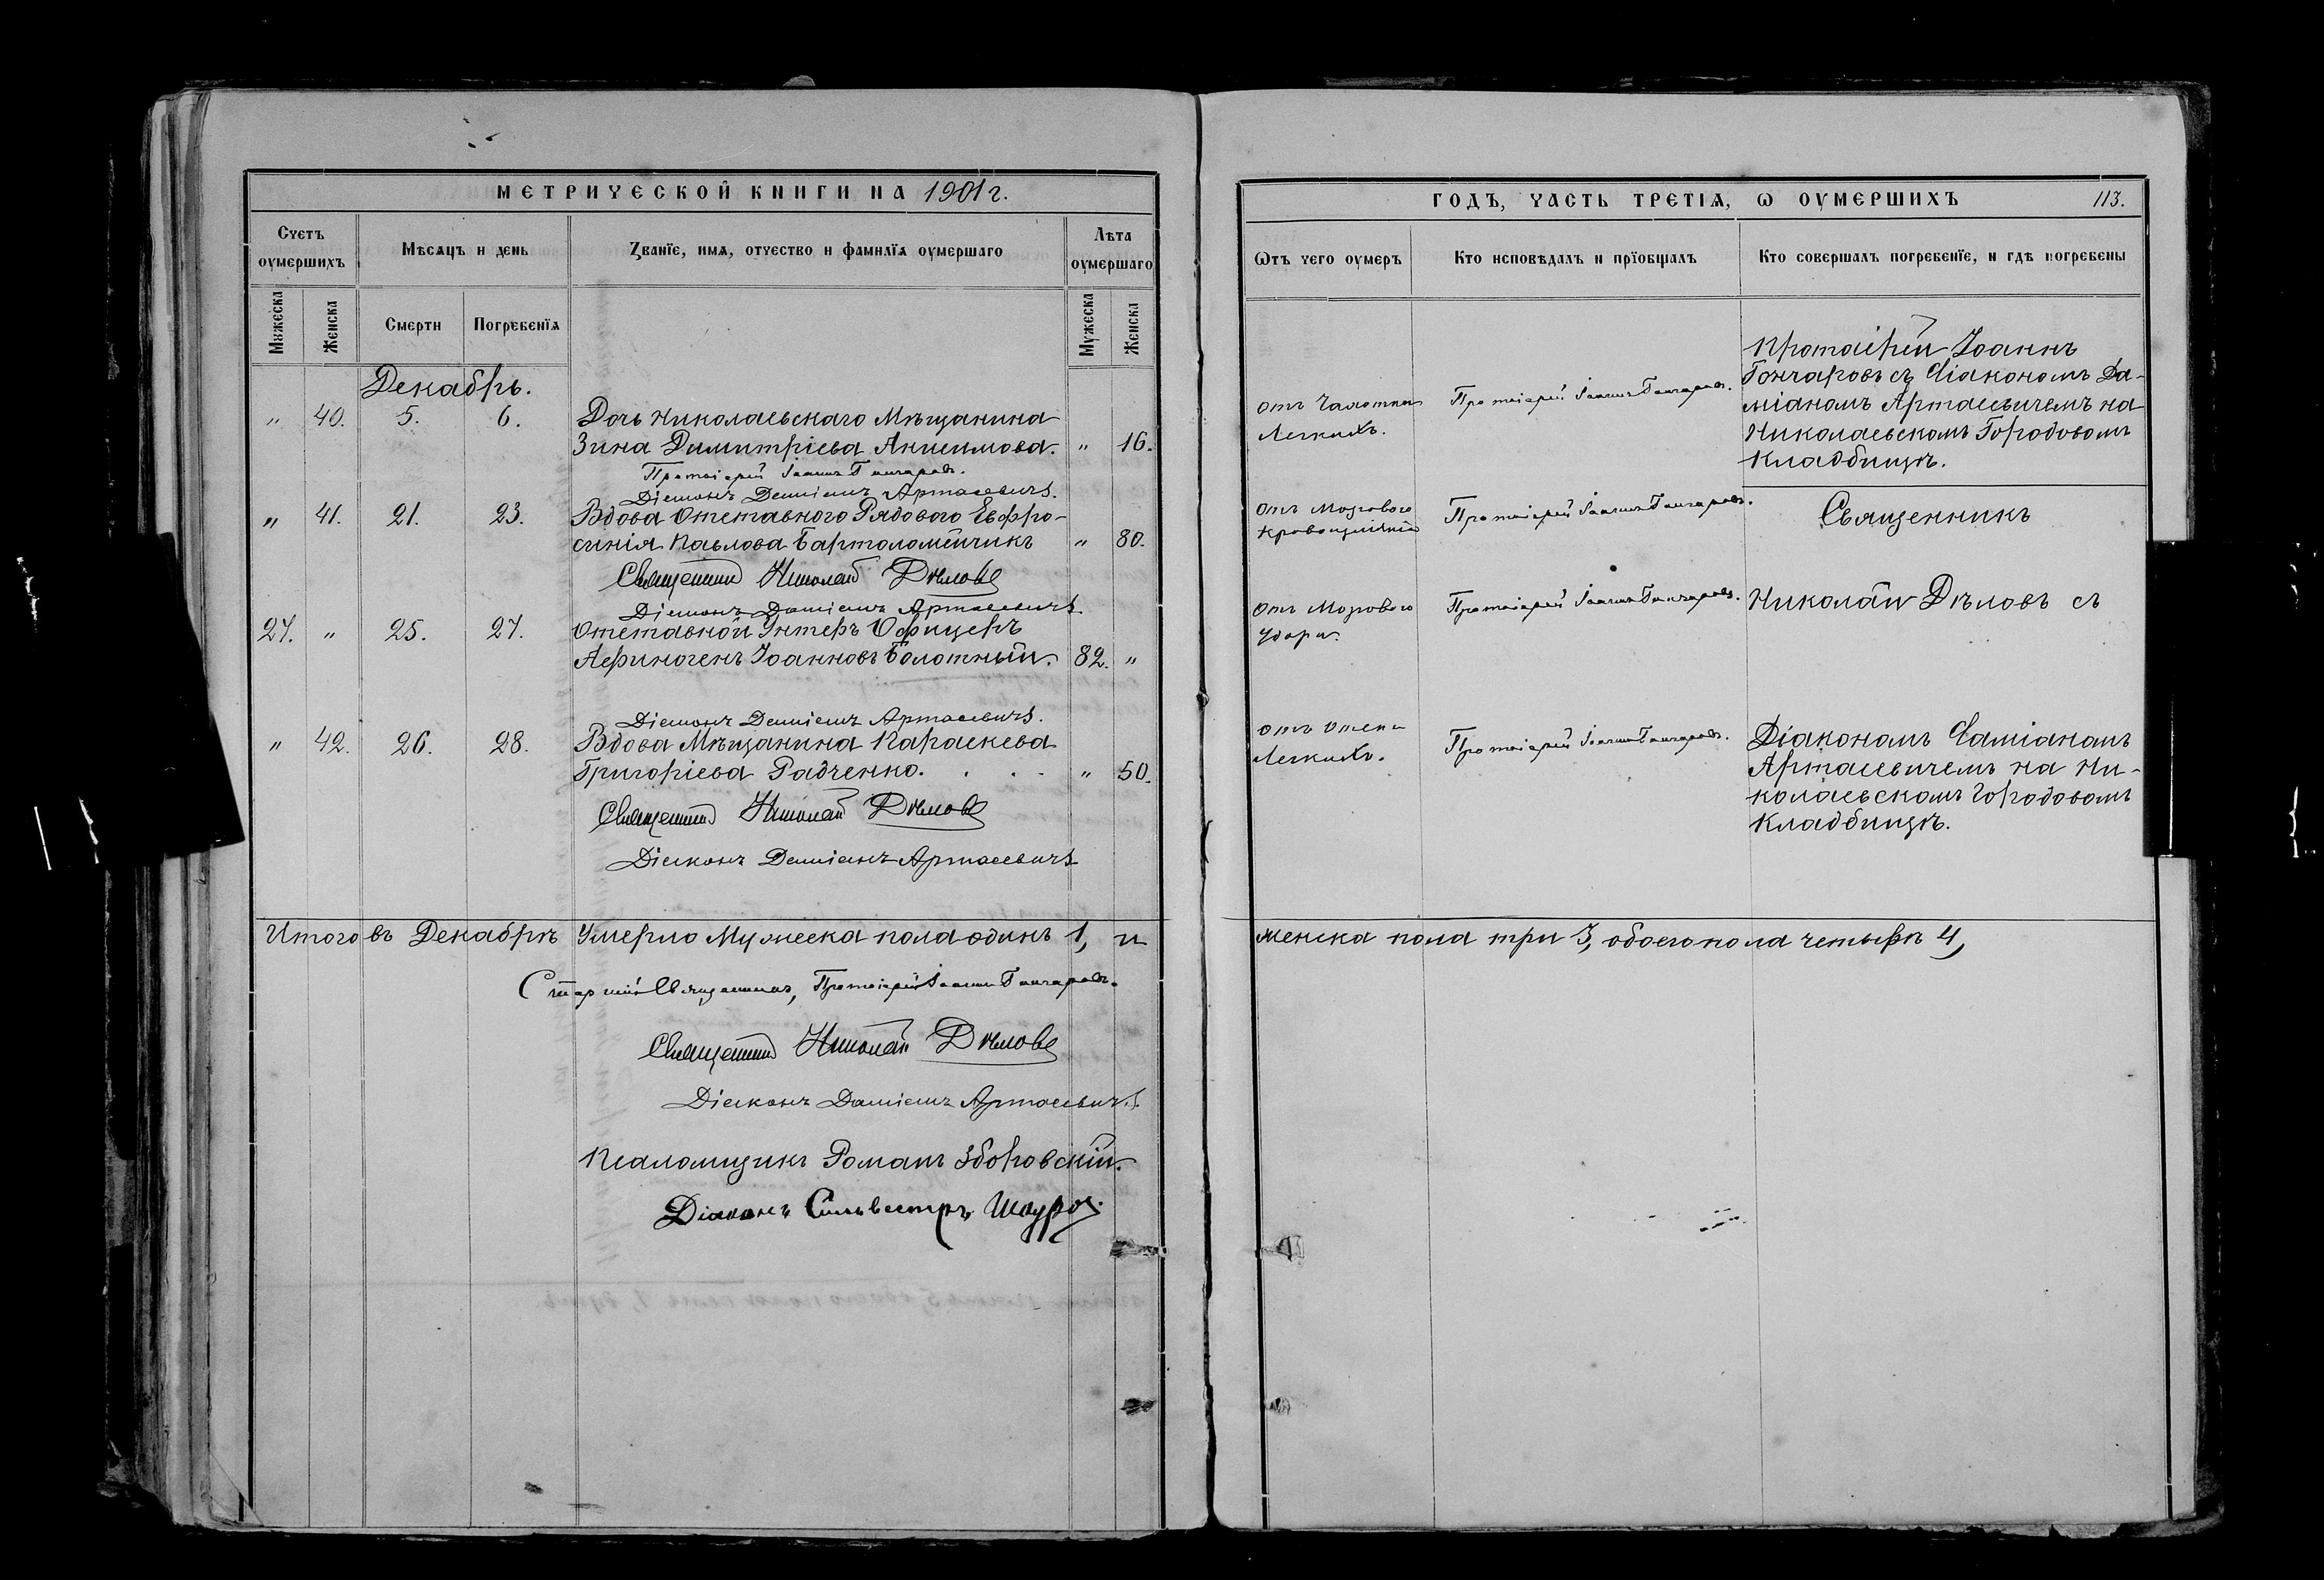 МЕТРИЧЕСКОЙ КНИГИ НА 1901 г.
Счетъ оумершихъ
Мѣсяцъ и день
Званїе, имѧ, отчество и фамилїѧ оумершаго
Лѣта оумершаго
Мужеска
Женска
Смерти
Погребенїѧ
Мужеска
Женска
Декабрь.
" 40. 5. 6. Дочь Николаевскаго Мѣщанина
Зина Димитріева Анисимова. " 16.
Протоіерей Іоаннъ Гончаровъ.
Діаконъ Даміанъ Артасевичъ.
" 41. 21. 23. Вдова Отставного Рядового Евфро-
синія Павлова Бартоломейчикъ " 80.
Священникъ Николай Дѣловъ
Діаконъ Даміанъ Артасевичъ
27. " 25. 27. Отставной Унтеръ Офицеръ
Афиногенъ Іоанновъ Болотный. 82. "
Діаконъ Даміанъ Артасевичъ.
" 42. 26. 28. Вдова Мѣщанина Параскева
Григоріева Радченко. . . . " 50.
Священникъ Николай Дѣловъ
Діаконъ Даміанъ Артасевичъ
Итого въ Декабрѣ Умерло Мужеска пола одинъ 1, и
Старшій Священникъ, Протоіерей Іоаннъ Гончаровъ.
Священникъ Николай Дѣловъ
Діаконъ Даміанъ Артасевичъ.
Псаломщикъ Романъ Зборовскій.
Діаконъ Сильвестръ
ГОДЪ, ЧАСТЬ ТРЕТІѦ, Ѡ ОУМЕРШИХЪ 113.
Ѿтъ чего оумеръ
Кто исповѣдалъ и прїобщалъ
Кто совершалъ погребенїе, и гдѣ погребены
отъ Чахотки
Легкихъ.
Протоіерей Іоаннъ Гончаровъ.
Протоіерей Іоаннъ
Гончаровъ съ Діакономъ Да-
міаномъ Артасевичемъ на
Николаевскомъ Городовомъ
Кладбищѣ.
отъ Мозгового
Кровоизліянія
Протоіерей Іоаннъ Гончаровъ.
Священникъ
отъ Мозгового
Удара.
Протоіерей Іоаннъ Гончаровъ.
Николай Дѣловъ съ
отъ Отека
Легкихъ.
Протоіерей Іоаннъ Гончаровъ.
Діакономъ Даміаномъ
Артасевичемъ на Ни-
колаевскомъ Городовомъ
Кладбищѣ.
женска пола три 3, обоего пола четыре 4,